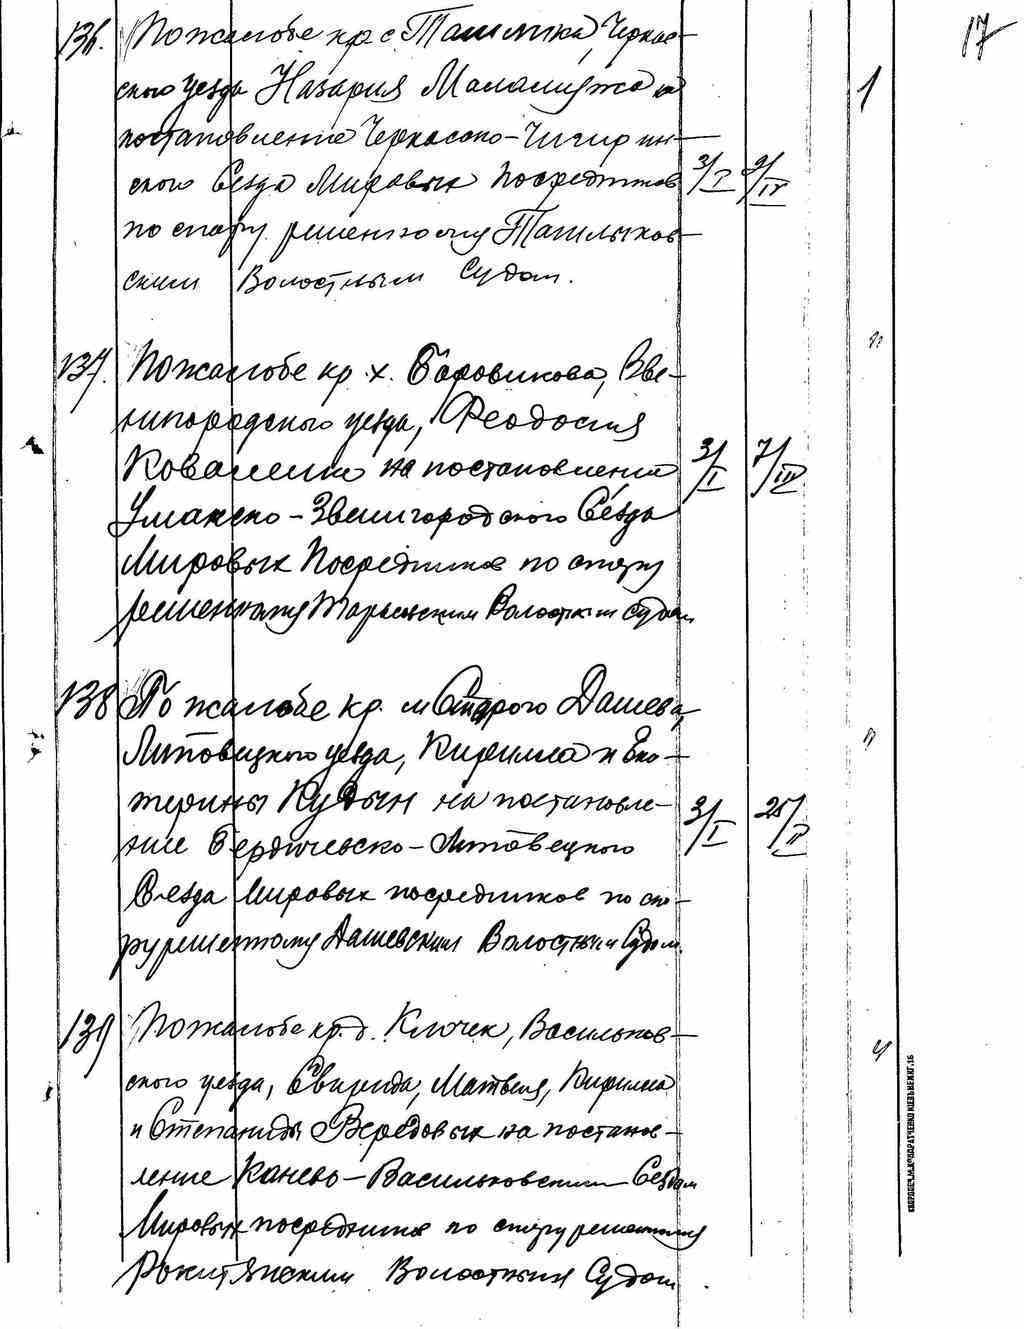 17
136. По жалобе кр. с. Ташлыка, Черкас-
ского уезда Назария на
постановление Черкасско-Чигирин-
ского Съезда Мировых Посредников 3/I 9/IV
по спору решенному Ташлыков-
ским Волостным Судом.
1
137. По жалобе кр. х. Боровикова, Зве-
нигородского уезда, Феодосия
Ковалени на постановление 3/I 7/III
Уманско-Звенигородского Съезда
Мировых Посредников по спору
решенному Волостным Судом
138 По жалобе кр. м. Старого Дашева,
Липовецкого уезда, Кирилла и Ека-
терины Кудын на постановле- 3/I 25/II
ние Бердичевско-Липовецкого
Съезда Мировых посредников по спо-
ру решенному Дашевским Волостным Судом.
139 По жалобе кр. д. Ключек, Васильков-
ского уезда, Свирида, Матвея, Кирилла
и Степаниды Вередовых на постанов-
ление Канево-Васильковским Съездом
Мировых посредников по спору решенному
Рокитянским Волостным Судом.